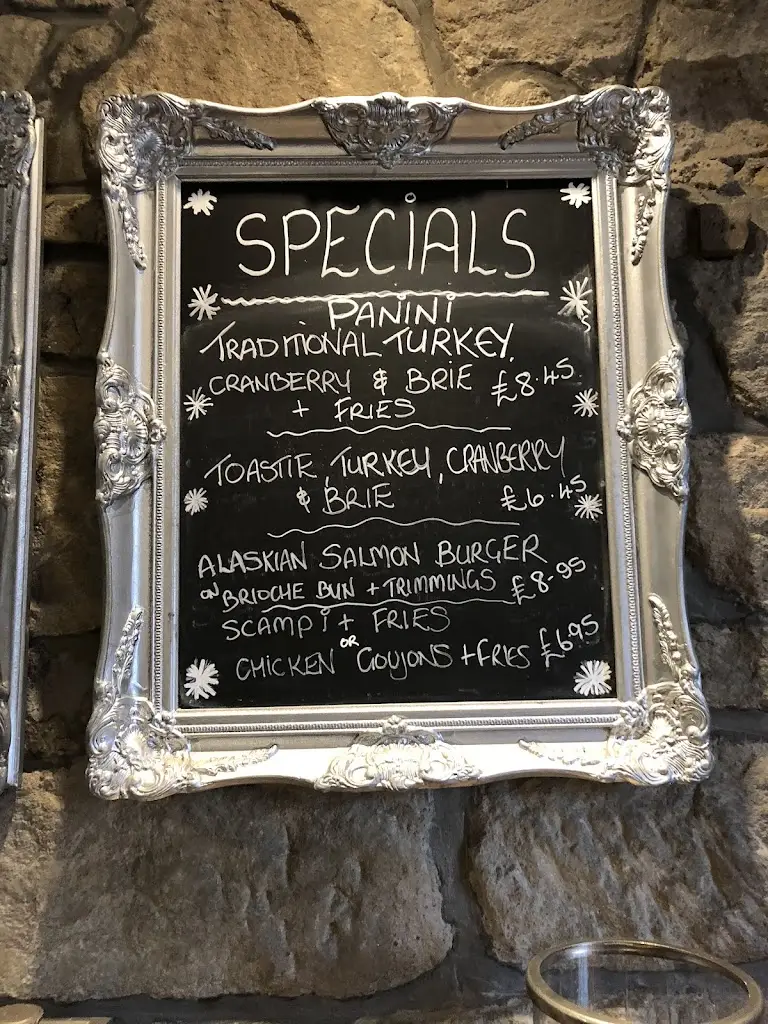 SPECIALS
PANINI
TRADITIONAL TURKEY,
CRANBERRY & BRIE £8.45
+ FRIES
TOASTIE, TURKEY, CRANBERRY
& BRIE £6.45
ALASKIAN SALMON BURGER
ON BRIOCHE BUN + TRIMMINGS £8-95
SCAMPI + FRIES
OR
CHICKEN GOUJONS + FRIES £6.95